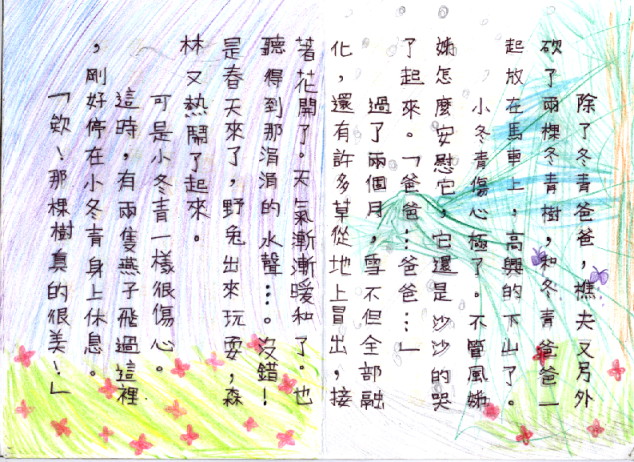 除了冬青爸爸，樵夫又另外
砍了兩棵冬青樹，和冬青爸爸一
起放在馬車上，高興的下山了。
小冬青傷心極了。不管風姊
姊怎麼安慰它，它還是沙沙的哭
了起來。「爸爸…爸爸…」
過了兩個月，雪不但全部融
化，還有許多草從地上冒出，接
著花開了。天氣漸漸暖和了。也
聽得到那涓涓的水聲…。沒錯！
是春天來了，野兔出來玩耍，森
林又熱鬧了起來。
可是小冬青一樣很傷心。
這時，有兩隻燕子飛過這裡
，剛好停在小冬青身上休息。
「欸！那棵樹真的很美！」